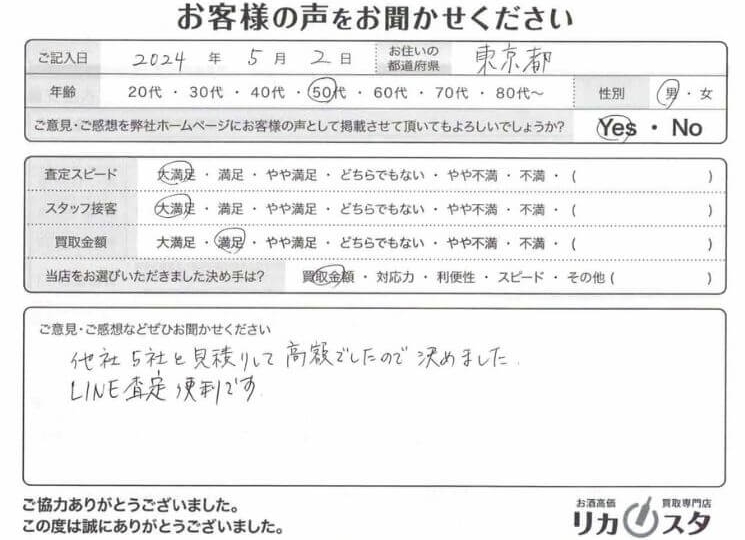 お客様の声をお聞かせください
ご記入日 2024 年 5 月 2 日 お住いの都道府県 東京都
年齢 20代 ・ 30代 ・ 40代 ・ 50代 ・ 60代 ・ 70代 ・ 80代〜 性別 男 ・ 女
ご意見・ご感想を弊社ホームページにお客様の声として掲載させて頂いてもよろしいでしょうか? Yes ・ No
査定スピード 大満足 ・ 満足 ・ やや満足 ・ どちらでもない ・ やや不満 ・ 不満 ・ ( )
スタッフ接客 大満足 ・ 満足 ・ やや満足 ・ どちらでもない ・ やや不満 ・ 不満 ・ ( )
買取金額 大満足 ・ 満足 ・ やや満足 ・ どちらでもない ・ やや不満 ・ 不満 ・ ( )
当店をお選びいただきました決め手は? 買取金額 ・ 対応力 ・ 利便性 ・ スピード ・ その他 ( )
ご意見・ご感想などぜひお聞かせください
他社5社と見積りして高額でしたので決めました.
LINE査定便利です
ご協力ありがとうございました。
この度は誠にありがとうございました。
お酒高価 買取専門店
リカスタ